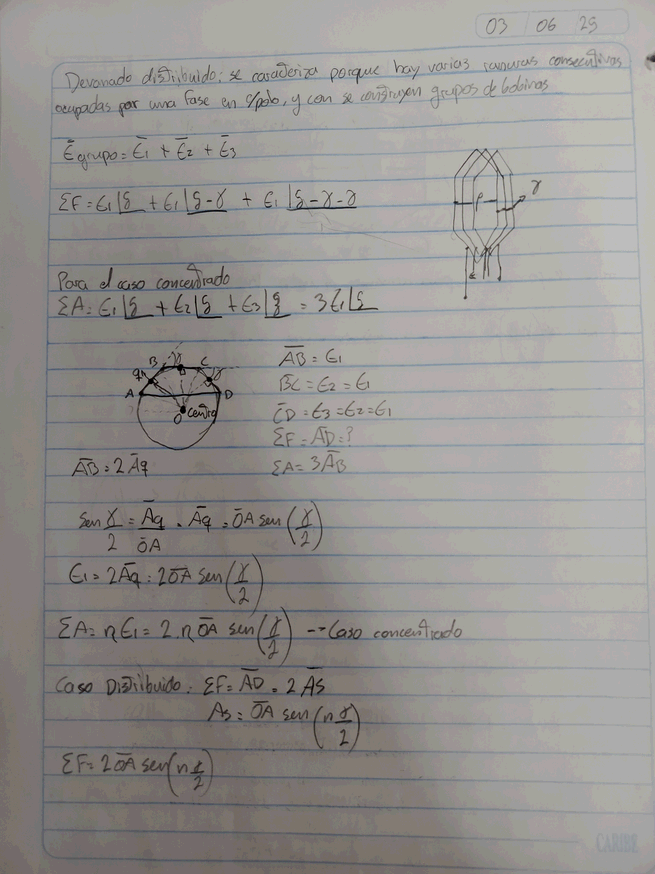 03 06 25
Devanado distribuido: se caracteriza porque hay varias ranuras consecutivas
ocupadas por una fase en c/polo, y con se construyen grupos de bobinas
Ēgrupo = Ē1 + Ē2 + Ē3
ΣF = Є1|ξ + Є1|ξ-γ + Є1|ξ-γ-γ
ρ γ
Para el caso concentrado
ΣA = Є1|ξ + Є2|ξ + Є3|ξ = 3Є1|ξ
A q B γ C γ D
O centro
AB = Є1
BC = Є2 = Є1
CD = Є3 = Є2 = Є1
ΣF = AD = ?
AB = 2Aq
ΣA = 3AB
sen γ/2 = Aq/OA = Aq = OA sen(γ/2)
Є1 = 2Aq = 2OA sen(γ/2)
ΣA = nЄ1 = 2.n OA sen(γ/2) -- Caso concentrado
Caso Distribuido: ΣF = AD = 2 AS
AS = OA sen(nγ/2)
ΣF = 2OA sen(nγ/2)
CARIBE